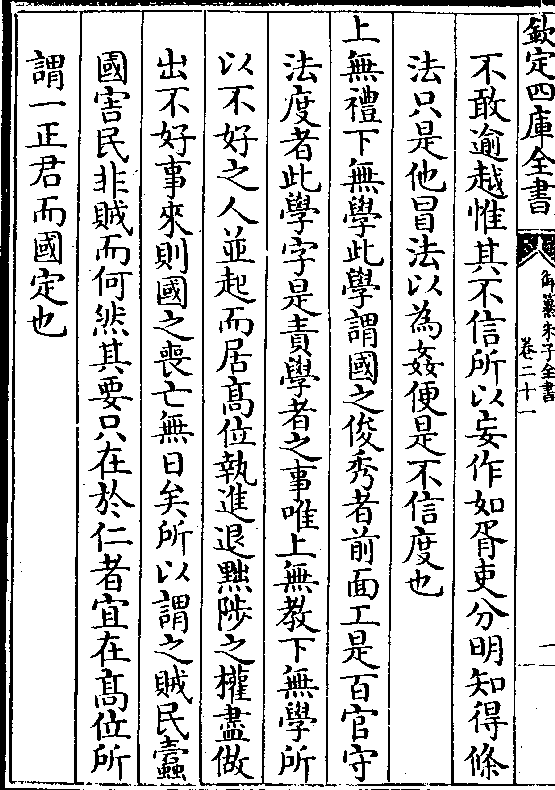 欽定四庫全書
御纂朱子全書
卷二十一
不敢逾越惟其不信所以妄作如胥吏分明知得條
法只是他冒法以為姦便是不信度也
上無禮下無學此學謂國之俊秀者前面工是百官守
法度者此學字是責學者之事唯上無教下無學所
以不好之人並起而居高位執進退黜陟之權盡做
出不好事來則國之喪亡無日矣所以謂之賊民蠧
國害民非賊而何然其要只在於仁者宜在高位所
謂一正君而國定也